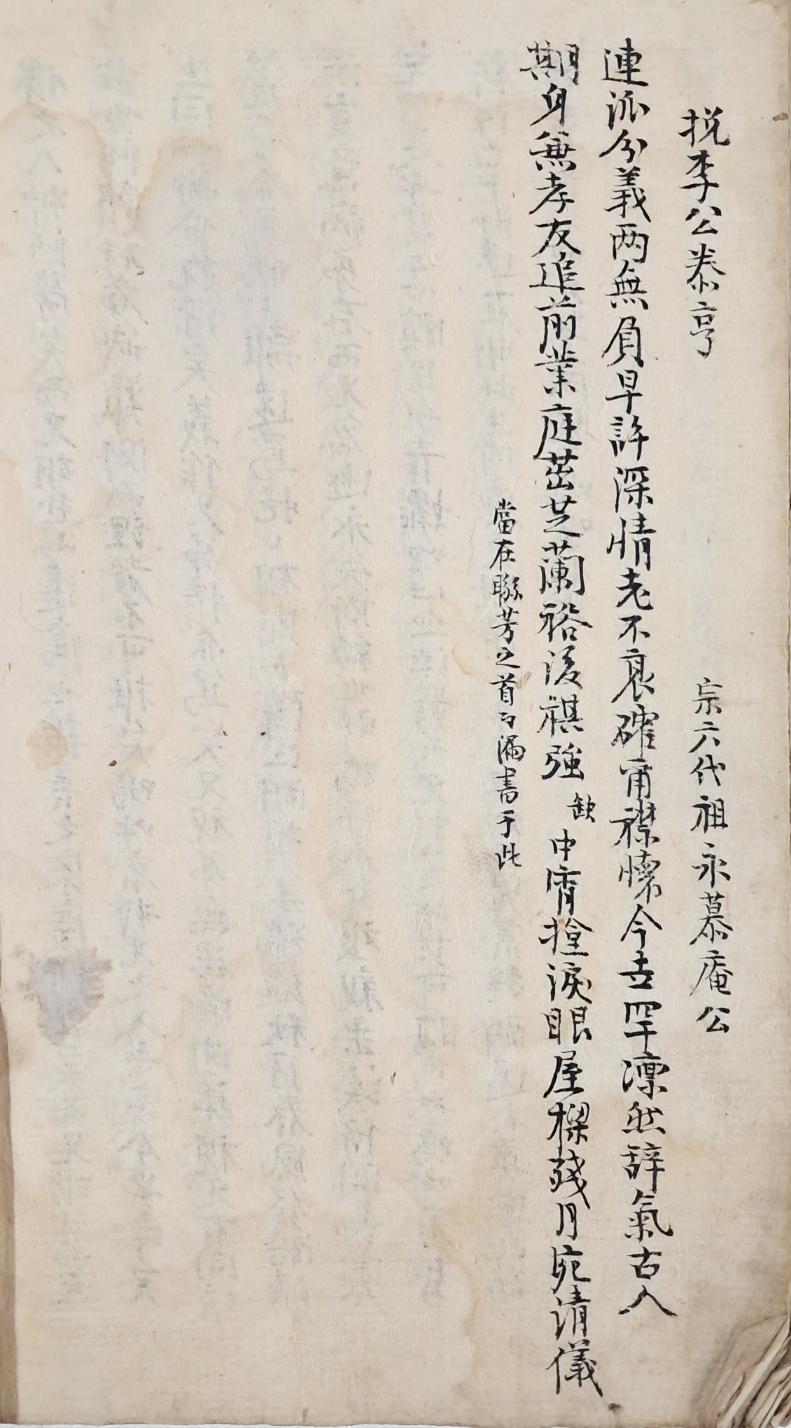 挽李公泰亨 宗六代祖永慕庵公
連派分義両無負早許深情老不衰確甭襟懷今去罕凛然辞氣古人
期身兼孝友追前業庭茁芝蘭裕後祺強 缺 中宵擡淚眼屋樑残月宛清儀
當在聯芳之首而漏書于此